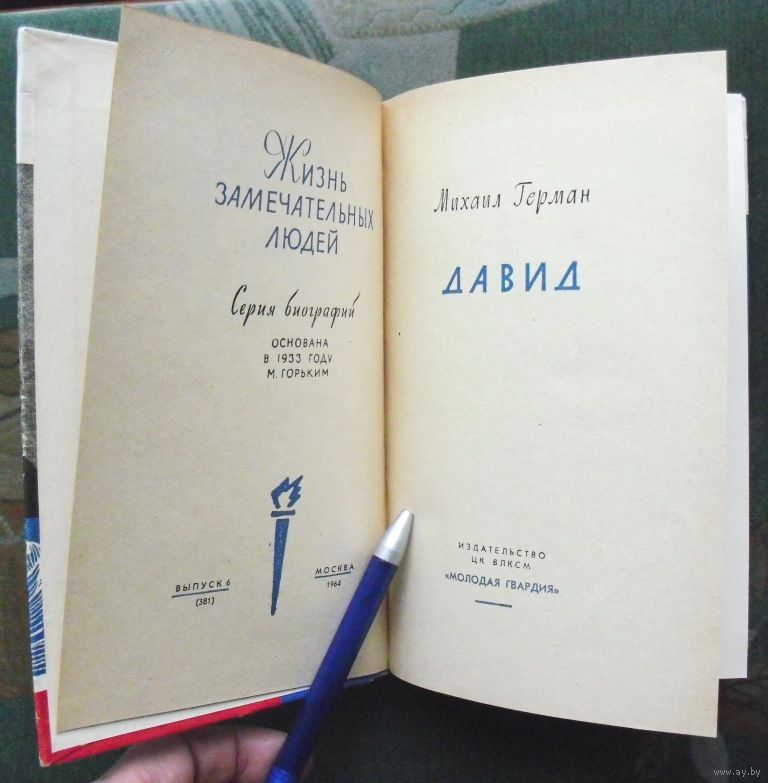 Жизнь
ЗАМЕЧАТЕЛЬНЫХ
ЛЮДЕЙ
Серия биографий
ОСНОВАНА
В 1933 ГОДУ
М. ГОРЬКИМ
ВЫПУСК 6
(381)
МОСКВА
1964
Михаил Герман
ДАВИД
ИЗДАТЕЛЬСТВО
ЦК ВЛКСМ
«МОЛОДАЯ ГВАРДИЯ»
www.ay.by